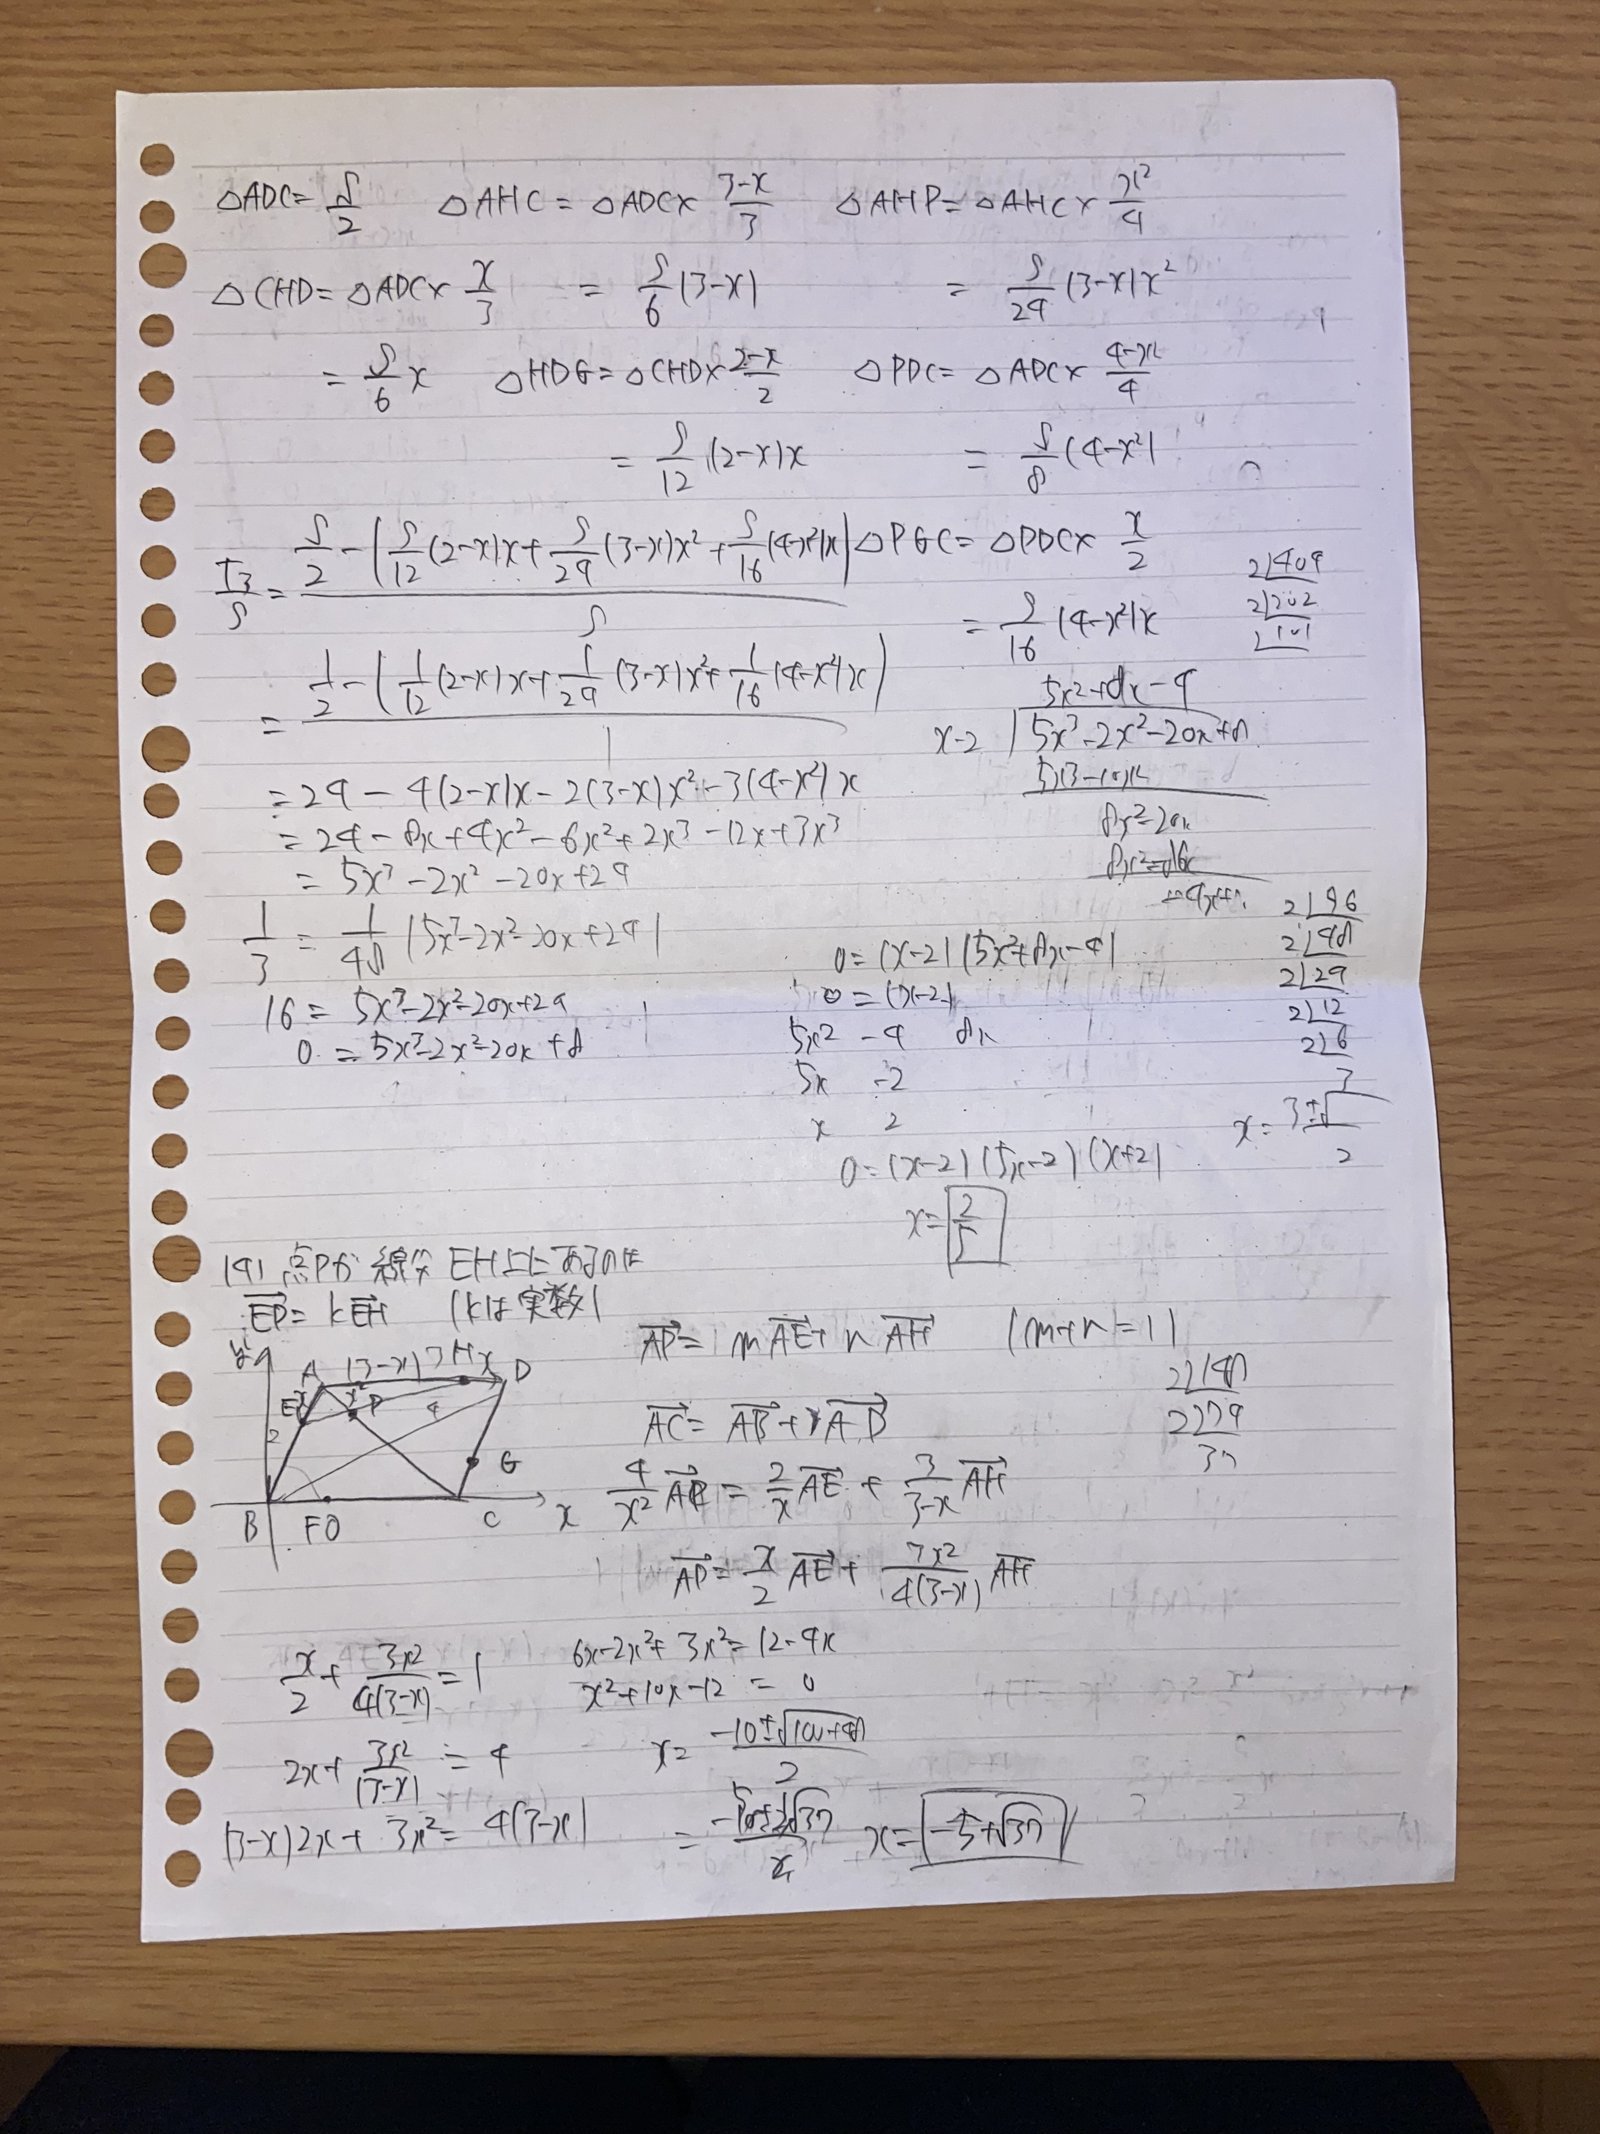 △ADC = S/2 △AHC = △ADC × (3-x)/3 △AHP = △AHC × x²/4
△CHD = △ADC × x/3 = S/6 (3-x) = S/24 (3-x)x²
= S/6 x △HDG = △CHD × (2-x)/2 △PDC = △ADC × (4-x²)/4
= S/12 (2-x)x = S/8 (4-x²)
T₃/S = (S/2 - (S/12 (2-x)x + S/24 (3-x)x² + S/16 (4-x²)x))/S △PGC = △PDC × x/2
= S/16 (4-x²)x
2)404
2)202
101
= (1/2 - (1/12 (2-x)x + 1/24 (3-x)x² + 1/16 (4-x²)x))/1
= 24 - 4(2-x)x - 2(3-x)x² - 3(4-x²)x
= 24 - 8x + 4x² - 6x² + 2x³ - 12x + 3x³
= 5x³ - 2x² - 20x + 24
1/3 = 1/48 (5x³-2x²-20x+24)
16 = 5x³-2x²-20x+24
0 = 5x³-2x²-20x+8
5x²+8x-4
x-2)5x³-2x²-20x+8
5x³-10x²
8x²-20x
8x²-16x
-4x+8
0=(x-2)(5x²+8x-4)
0=(x-2)
5x² -4 8x
5x -2
x 2
0=(x-2)(5x-2)(x+2)
x=2/5
2)96
2)48
2)24
2)12
2)6
3
x=3±√ /2
(4) 点Pが線分EH上にあるのは
EP→=kEH→ (kは実数)
y
A (3-x) 3 H x D
E x x² P
2 4
G
B F O C x
AP→=mAE→+nAH→ (m+n=1)
AC→=AB→+AD→
4/x² AP→=2/x AE→+3/(3-x) AH→
AP→=x/2 AE→+3x²/(4(3-x)) AH→
2)148
2)74
37
x/2+3x²/(4(3-x))=1
2x+3x²/(3-x)=4
(3-x)2x+3x²=4(3-x)
6x-2x²+3x²=12-4x
x²+10x-12=0
x=(-10±√(100+48))/2
x=-5+√37